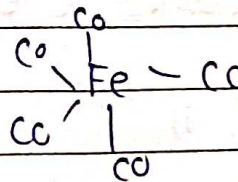 CO
CO
Fe
CO
CO
CO